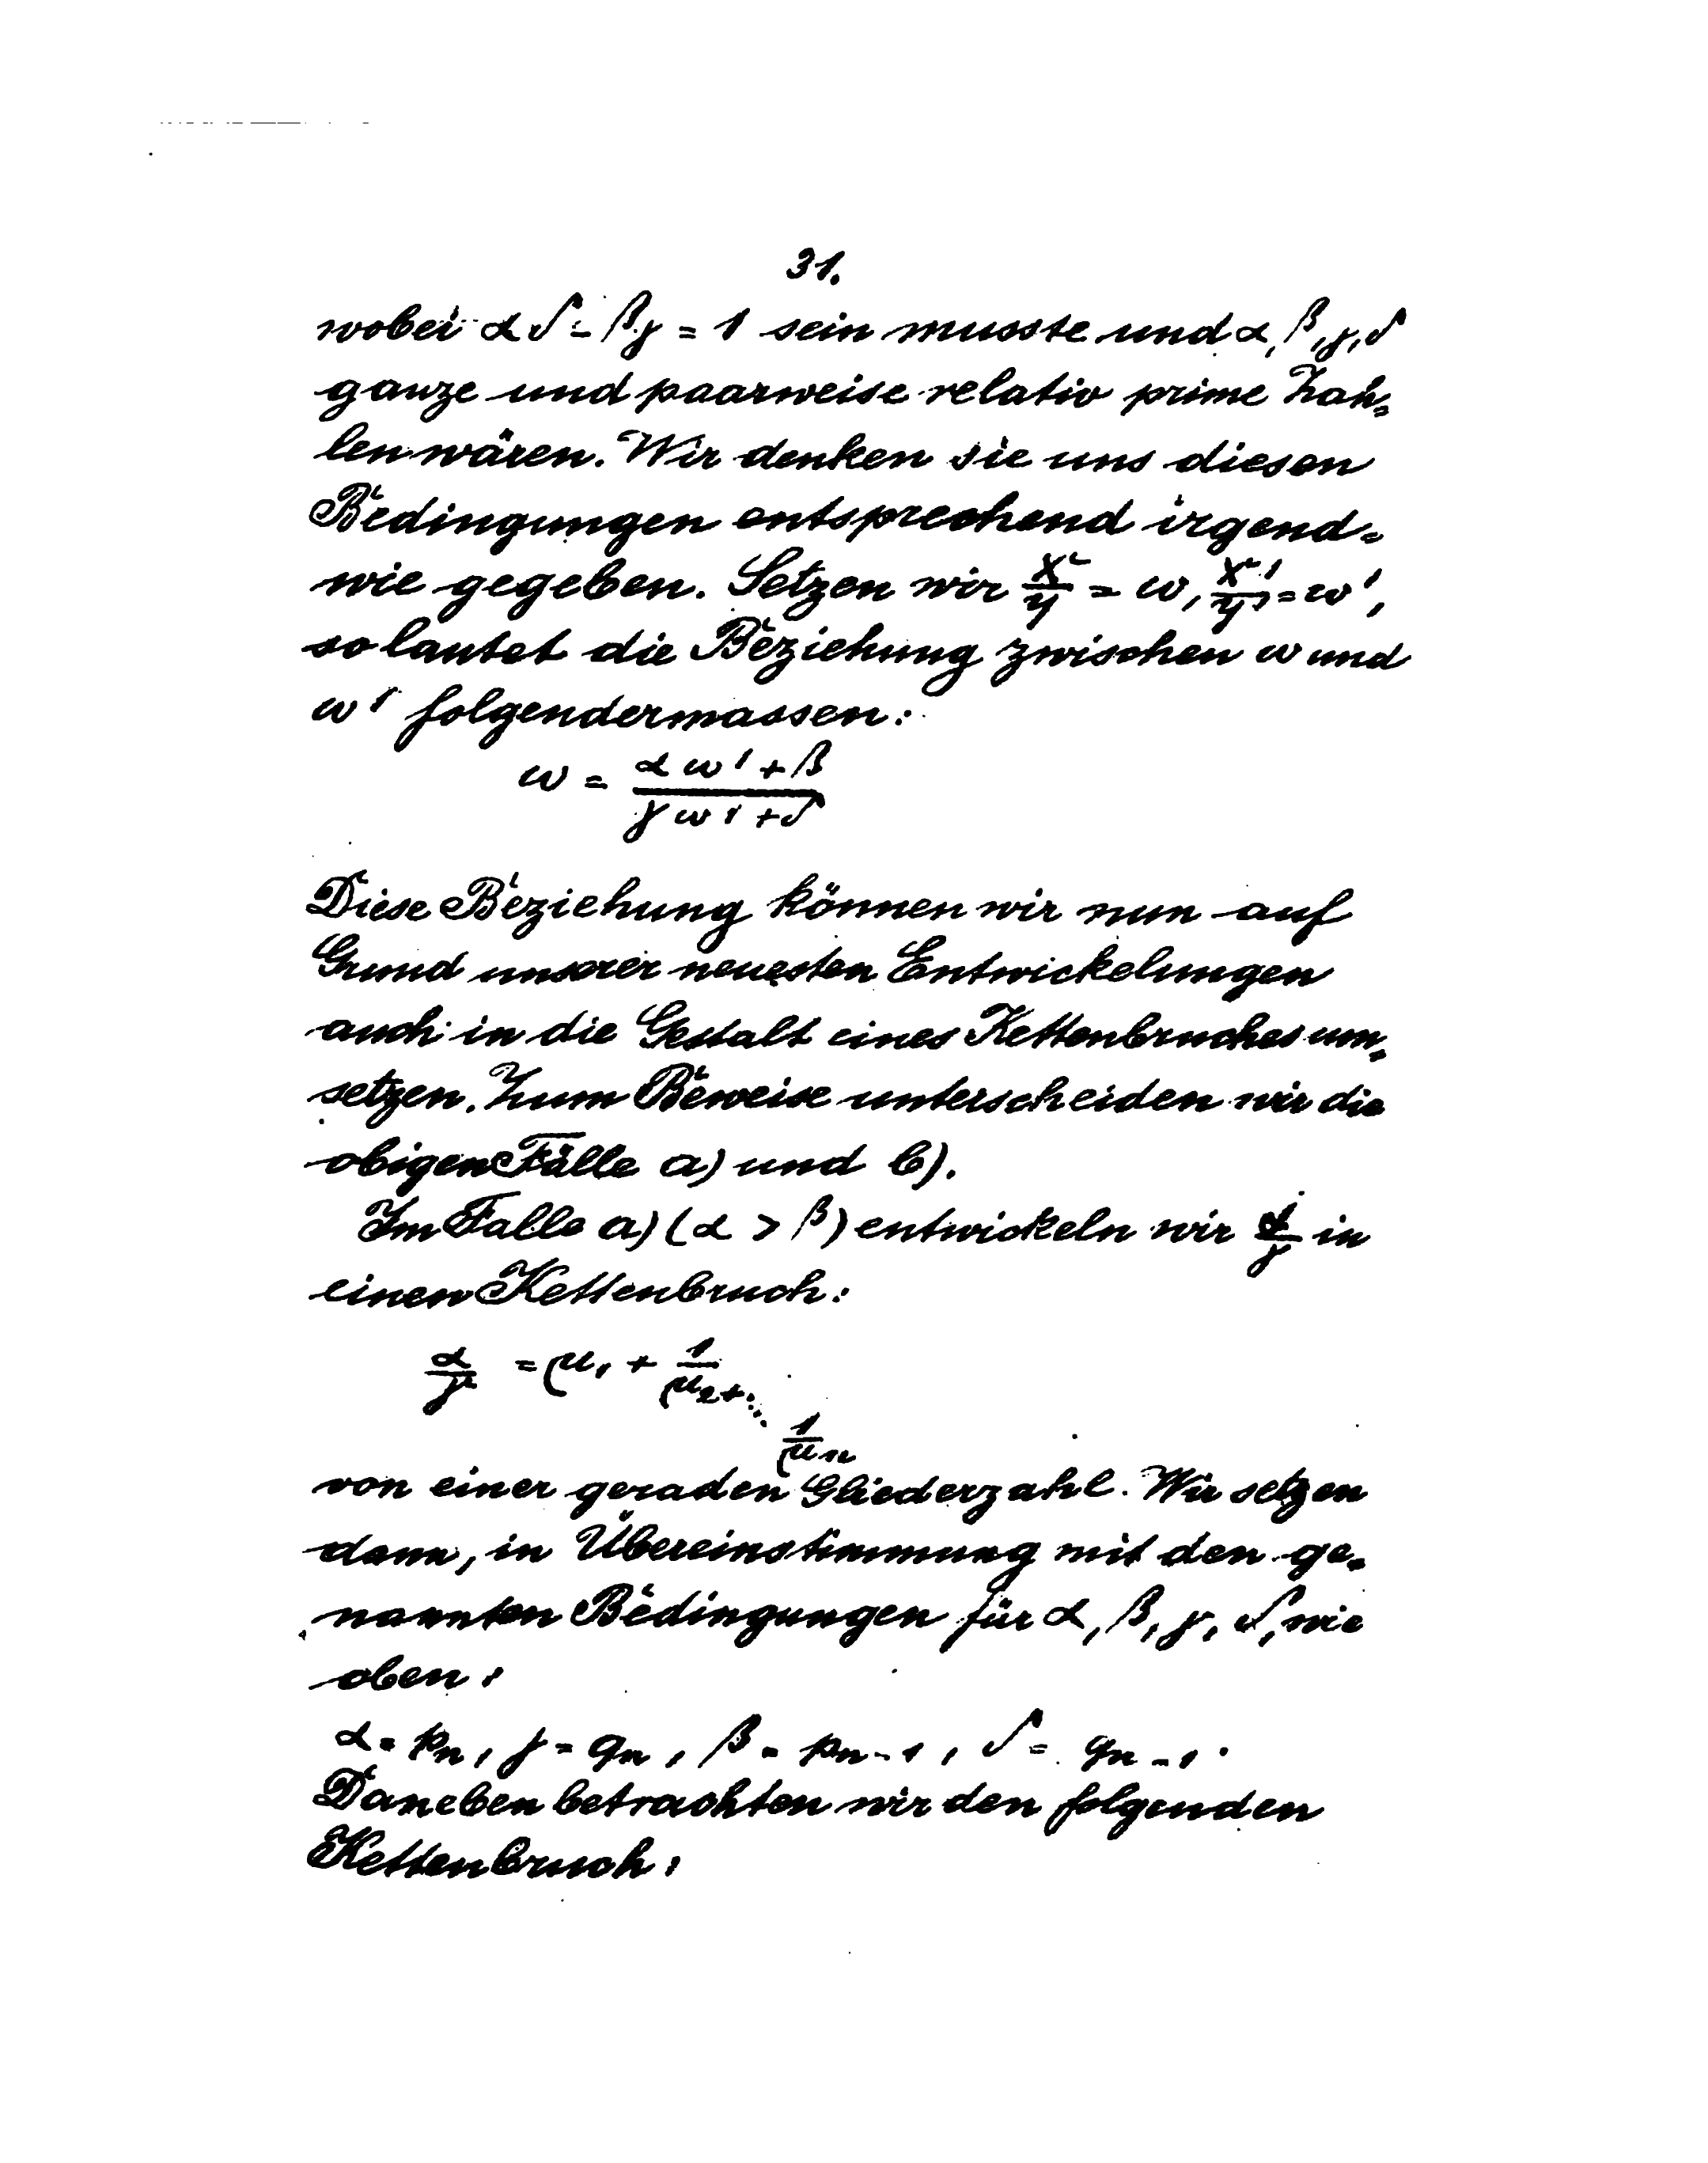 31.
wobei α δ - β γ = 1 sein musste und α, β, γ, δ
ganze und paarweise relativ prime Zah=
len wären. Wir denken sie uns diesen
Bedingungen entsprechend irgend=
wie gegeben. Setzen wir x/y = ω, x'/y' = ω',
so lautet die Beziehung zwischen ω und
ω' folgendermassen:
ω = (α ω' + β)/(γ ω' + δ)
Diese Beziehung können wir nun auf
Grund unserer neuesten Entwickelungen
auch in die Gestalt eines Kettenbruches um=
setzen. Zum Beweise unterscheiden wir die
obigen Fälle a) und b).
Im Falle a) (α > β) entwickeln wir α/γ in
einen Kettenbruch:
α/γ = μ₁ + 1/μ₂ + ⋱
1/μₙ
von einer geraden Gliederzahl. Wir setzen
dann, in Übereinstimmung mit den ge=
nannten Bedingungen für α, β, γ, δ, wie
oben:
α = pₙ, γ = qₙ, β = pₙ₋₁, δ = qₙ₋₁.
Daneben betrachten wir den folgenden
Kettenbruch: